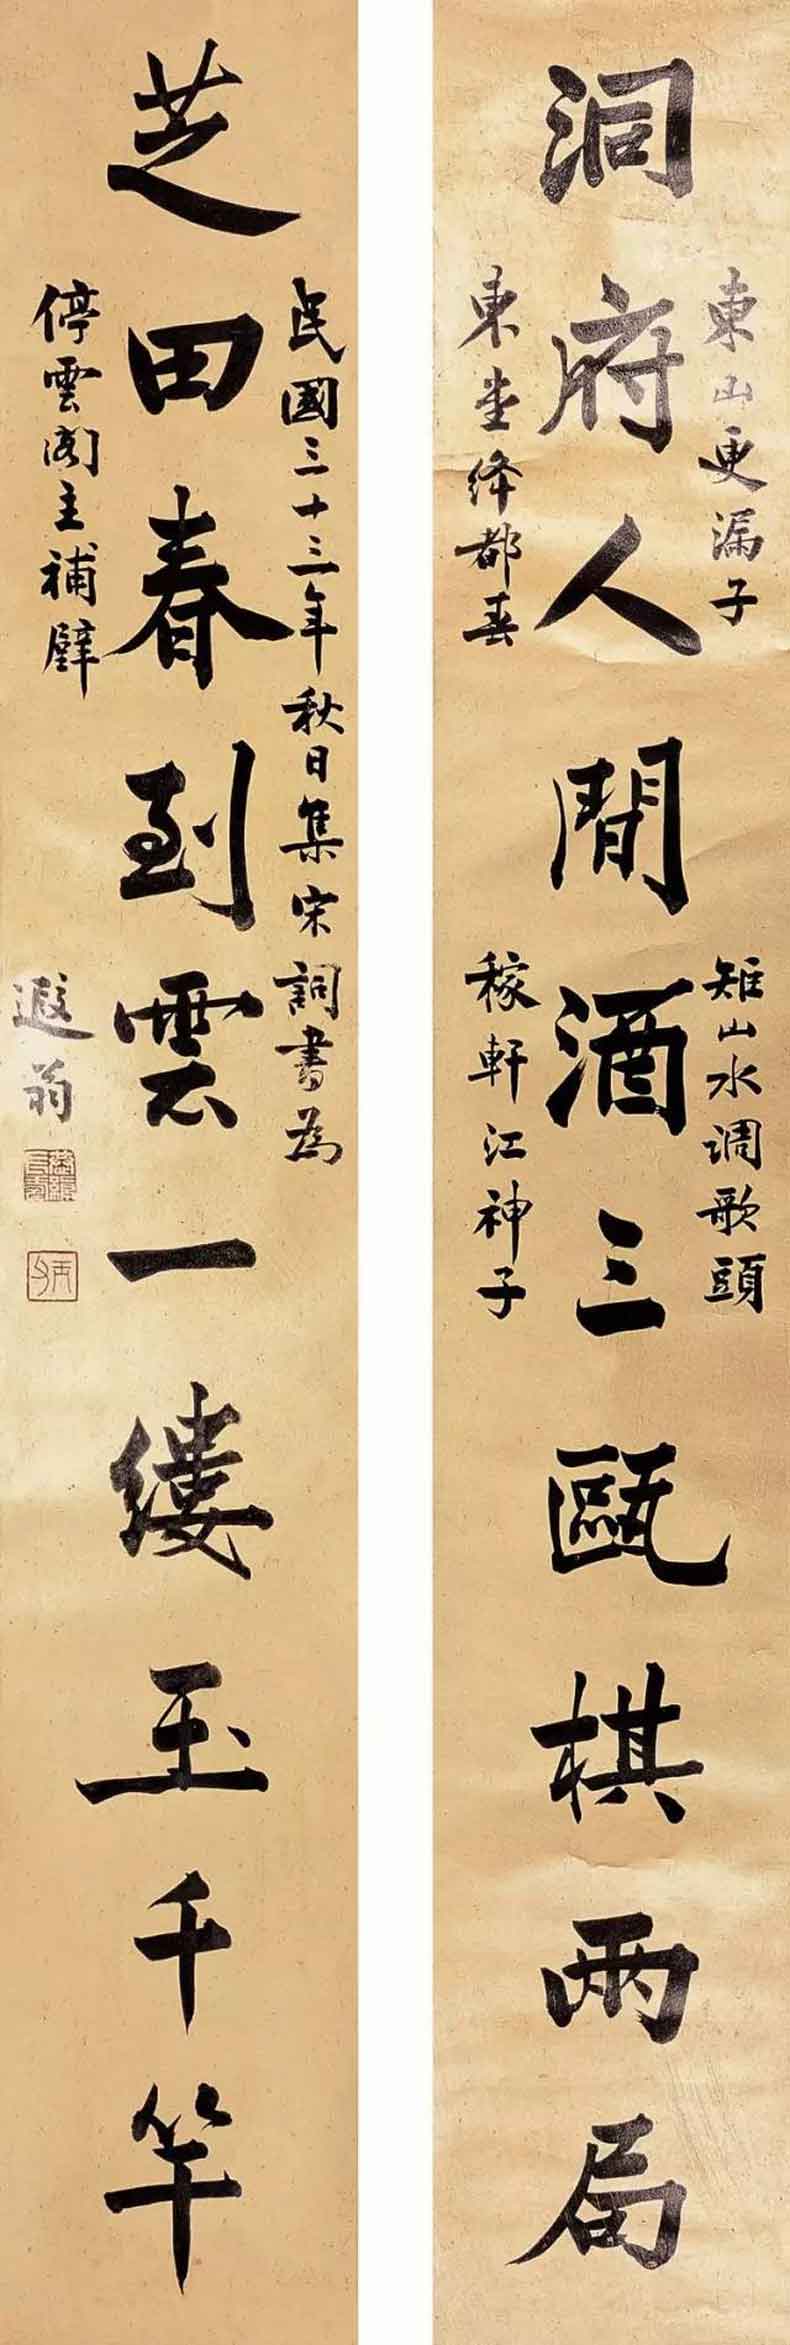 洞府人間酒三甌棋兩局
東山更漏子
雉山水调歌頭
東堂絳都春
稼軒江神子
芝田春到雲一縷玉千竿
民國三十三年秋日集宋詞書為
停雲阁主補壁
遐翁